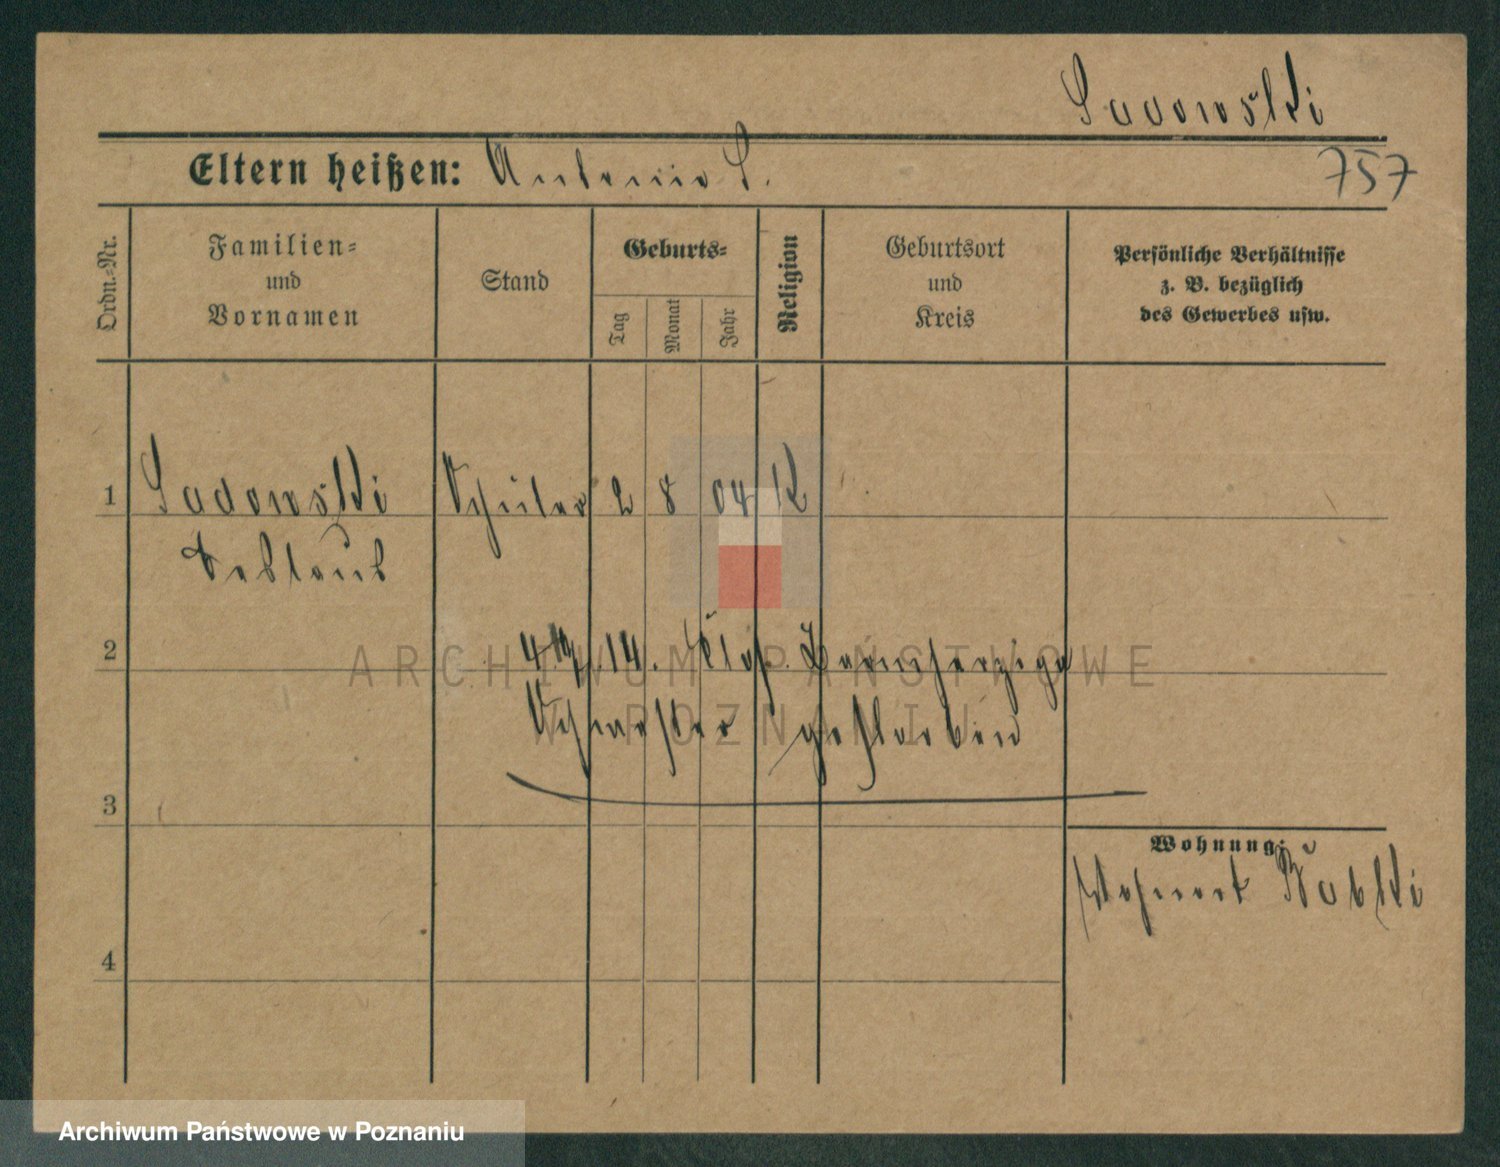 Sadowski
Eltern heißen: Antonie S.
757
Ordn.-Nr.
Familien-
und
Vornamen
Stand
Geburts-
Tag
Monat
Jahr
Religion
Geburtsort
und
Kreis
Persönliche Verhältnisse
z. B. bezüglich
des Gewerbes usw.
1 Sadowski Schüler 2 8 04 K
2 14. Barmherzige
Schwester gestorben
3
Wohnung:
Wohnort
4
ARCHIWUM PAŃSTWOWE
W POZNANIU
Archiwum Państwowe w Poznaniu